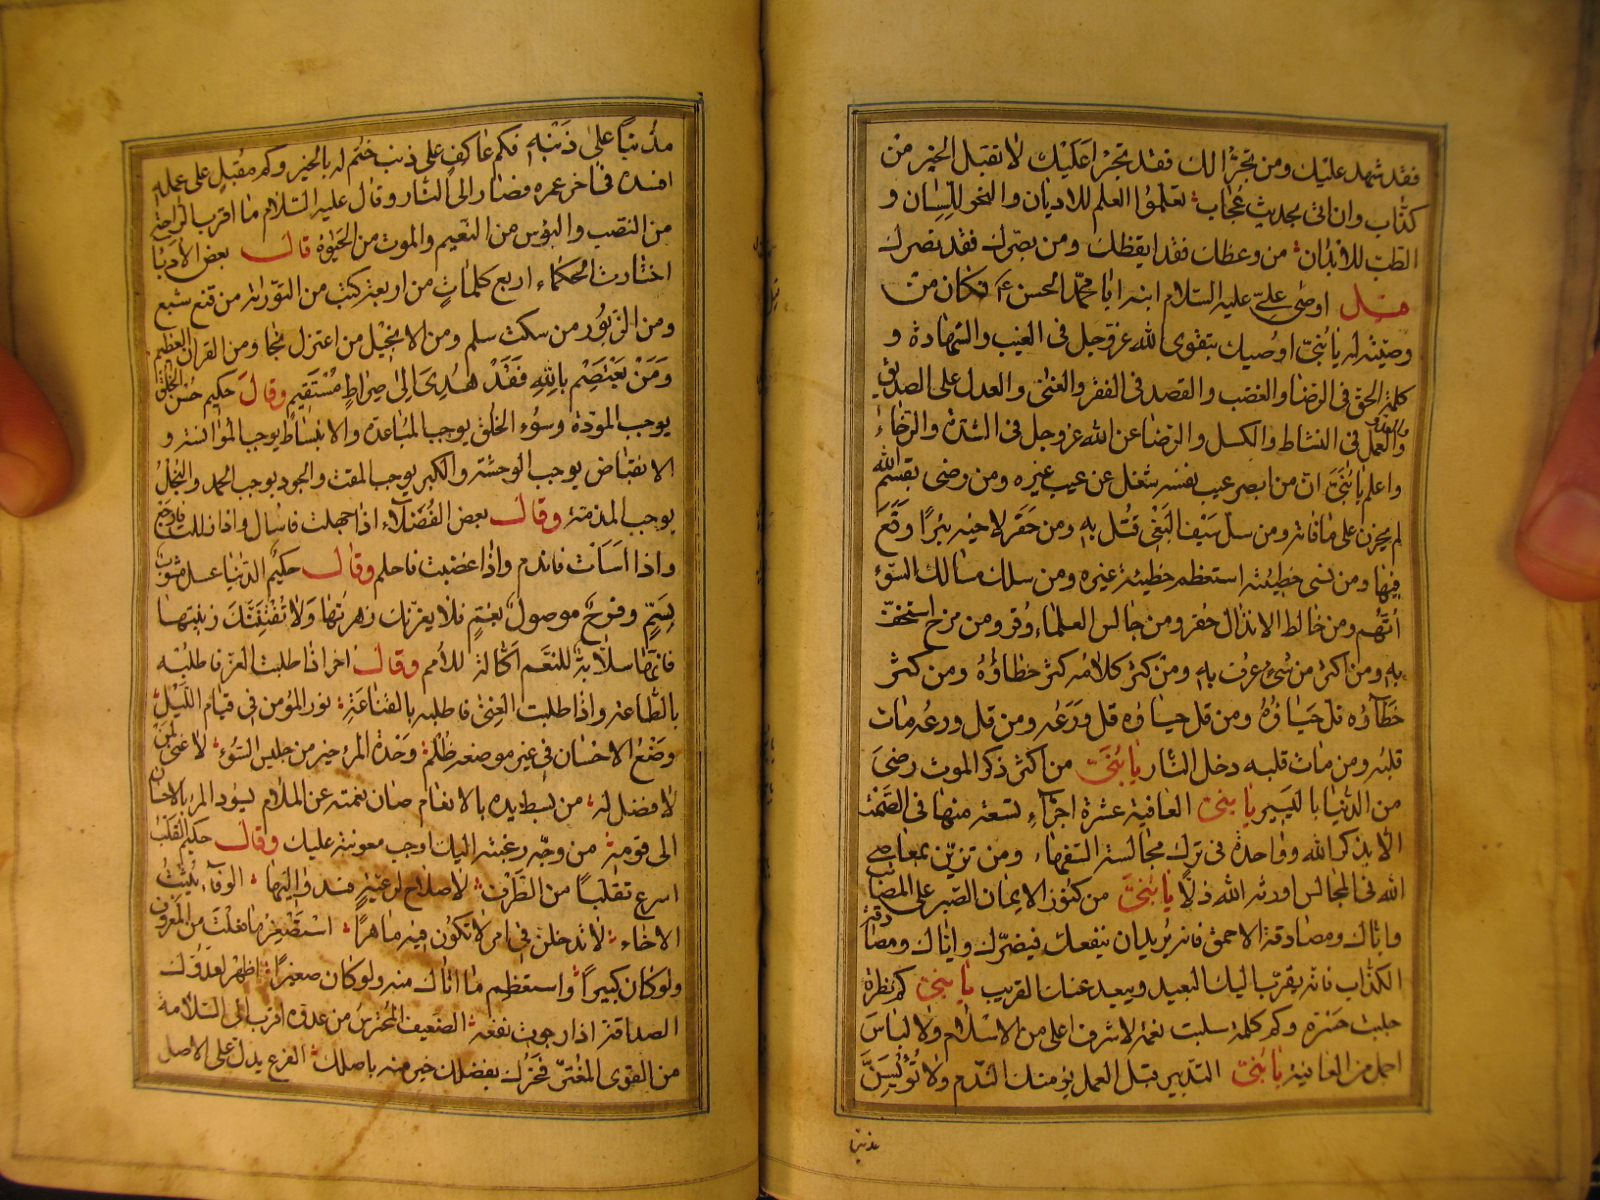 فقد شهد عليك ومن تجرّا لك فقد تجرّا عليك لا تقبل الخبر من
كذّاب وان اتى بحديث عُجاب تعلموا العلم للاديان والنحو للسان و
الطب للابدان من وعظك فقد ايقظك ومن بصّرك فقد نصرك
قيل اوصى علىّ عليه السلام ابنه ابا محمّد الحسن ع فكان من
وصيّته له يا بُنىّ اوصيك بتقوى الله عز وجل فى الغيب والشهادة و
كلمة الحق فى الرضا والغضب والقصد فى الفقر والغنى والعدل على الصديق
والعدو
والعمل فى النشاط والكسل والرضا عن الله عز وجل فى الشدة والرخاء
واعلم يا بُنىّ انّ من ابصر عيب نفسه شغل عن عيب غيره ومن رضى بقسم الله
لم يحزن على ما فاته ومن سلّ سيف البَغْىِ قُتل بهِ ومن حَفَر لاخيه بئرًا وَقَعَ
فيها ومن نسى خطيئته استعظم خطيئة غيره ومن سلك مسالك السّوءِ
اتُّهم ومن خالط الانذال حقر ومن جالس العلماء وُقر ومن مزح استخفّ
بهِ ومن اكثر من شىءٍ عرف بهِ ومن كثر كلامه كثر خطاؤه ومن كثر
خطاؤه قل حياؤُهُ ومن قل حياؤه قل ورَعُه ومن قل ورعُه مات
قلبُه ومن مات قلبه دخل النار يا بُنىَّ من اكثر ذكر الموت رضىَ
من الدّنيا باليَسير يا بنىّ العافية عشرة اجزآءٍ تسعة منها فى الصَّمْت
الا بذكر الله وواحدة فى ترك مجالسة السفهاء ومن تزيّن بمعاصى
الله فى المجالس اورثه الله ذلاًّ يا بُنىَّ من كنوز الايمان الصّبر على المصائب
واياك ومصادقة الاحمق فانه يُريد ان ينفعك فيضرّك واياك ومصادقة
الكذّاب فانه يقرّب اليك البعيد ويبعد عنك القريب يا بنىّ كم نظرة
جلبت حسرة وكم كلمة سلبت نعمة لا شرف اعلى من الاسلام ولا لباسَ
اجمل من العافية يا بُنىّ التدبير قبل العمل يؤمنك الندم ولا تُؤْيِسَنَّ
مذنبا
مذنباً على ذَنْبِهِ فكم عاكف على ذنب خُتم له بالخير وكم مقبل على عمله
افسده فى اخر عمره فصار الى النّار وقال عليه السلام ما اقرب الراحة
من النصب والبؤس من النعيم والموت من الحيوة قال بعض الادبا
اختارت الحكماء اربع كلماتٍ من اربعة كتب من التورية من قنع شبع
ومن الزَّبُور من سكت سلم ومن الانجيل من اعتزل نجا ومن القران العظيم
وَمَنْ يَعْتَصِمْ بِاللهِ فَقَدْ هُدِىَ اِلىٰ صِراطٍ مُسْتَقيمٍ وقالَ حكيم حُسن الخلق
يوجب المودة وسُوءِ الخلق يوجب المباعدة والانبساط يوجب المؤانسة و
الانقباض يوجب الوحشة والكبر يوجب المقت والجود يوجب الحمد والبخلُ
يوجب المذمة وقال بعض الفُضَلآء اذا جهلت فاسال واذا زللت فارجع
واذا اسَأت فاندم واذا غضبت فاحلم وقال حكيم الدّنيا عسل مشوب
بِسَمٍّ وفرحٌ موصول بغمٍ فلا يغرنّك زهرتها ولا تُفتِنَنَّك زينتها
فانها سلاّبة للنعَم اكالة للامم وقال اخر اذا طلبت العز فاطلبه
بالطاعة واذا طلبت الغِنىٰ فاطلبه بالقناعَةِ نور المؤمن فى قيام الليلِ
وضعُ الاحسان فى غير موضعه ظلم وَحْدة المرء خير من جليس السّوء لا غنى لمن
لا فضل له من بسط يده بالانعام صان نعمته عن الملام يسود المرء بالاحسان
الى قومه من وجّه رغبته اليك اوجب معونته عليك وقال حكيم القلب
اسرع تقلّباً من الطَّرْف لا صلاح لرعيّة فسد واليها الوفاء يثبت
الاخاء لا تدخلن فى امر لا تكون فيه ماهراً استصْغِر ما فعلْتَ من المعروف
ولو كان كبيراً واستعظم ما اتاك منه ولو كان صغيراً اظهر لعدوّك
الصداقة اذا رجوت نفعه الضعيف المُحترسُ من عدوّه اقرب الى السّلامة
من القوى المُغترّ فخرُك بفضلك خير منه باصلك الفرع يدل على الاصل